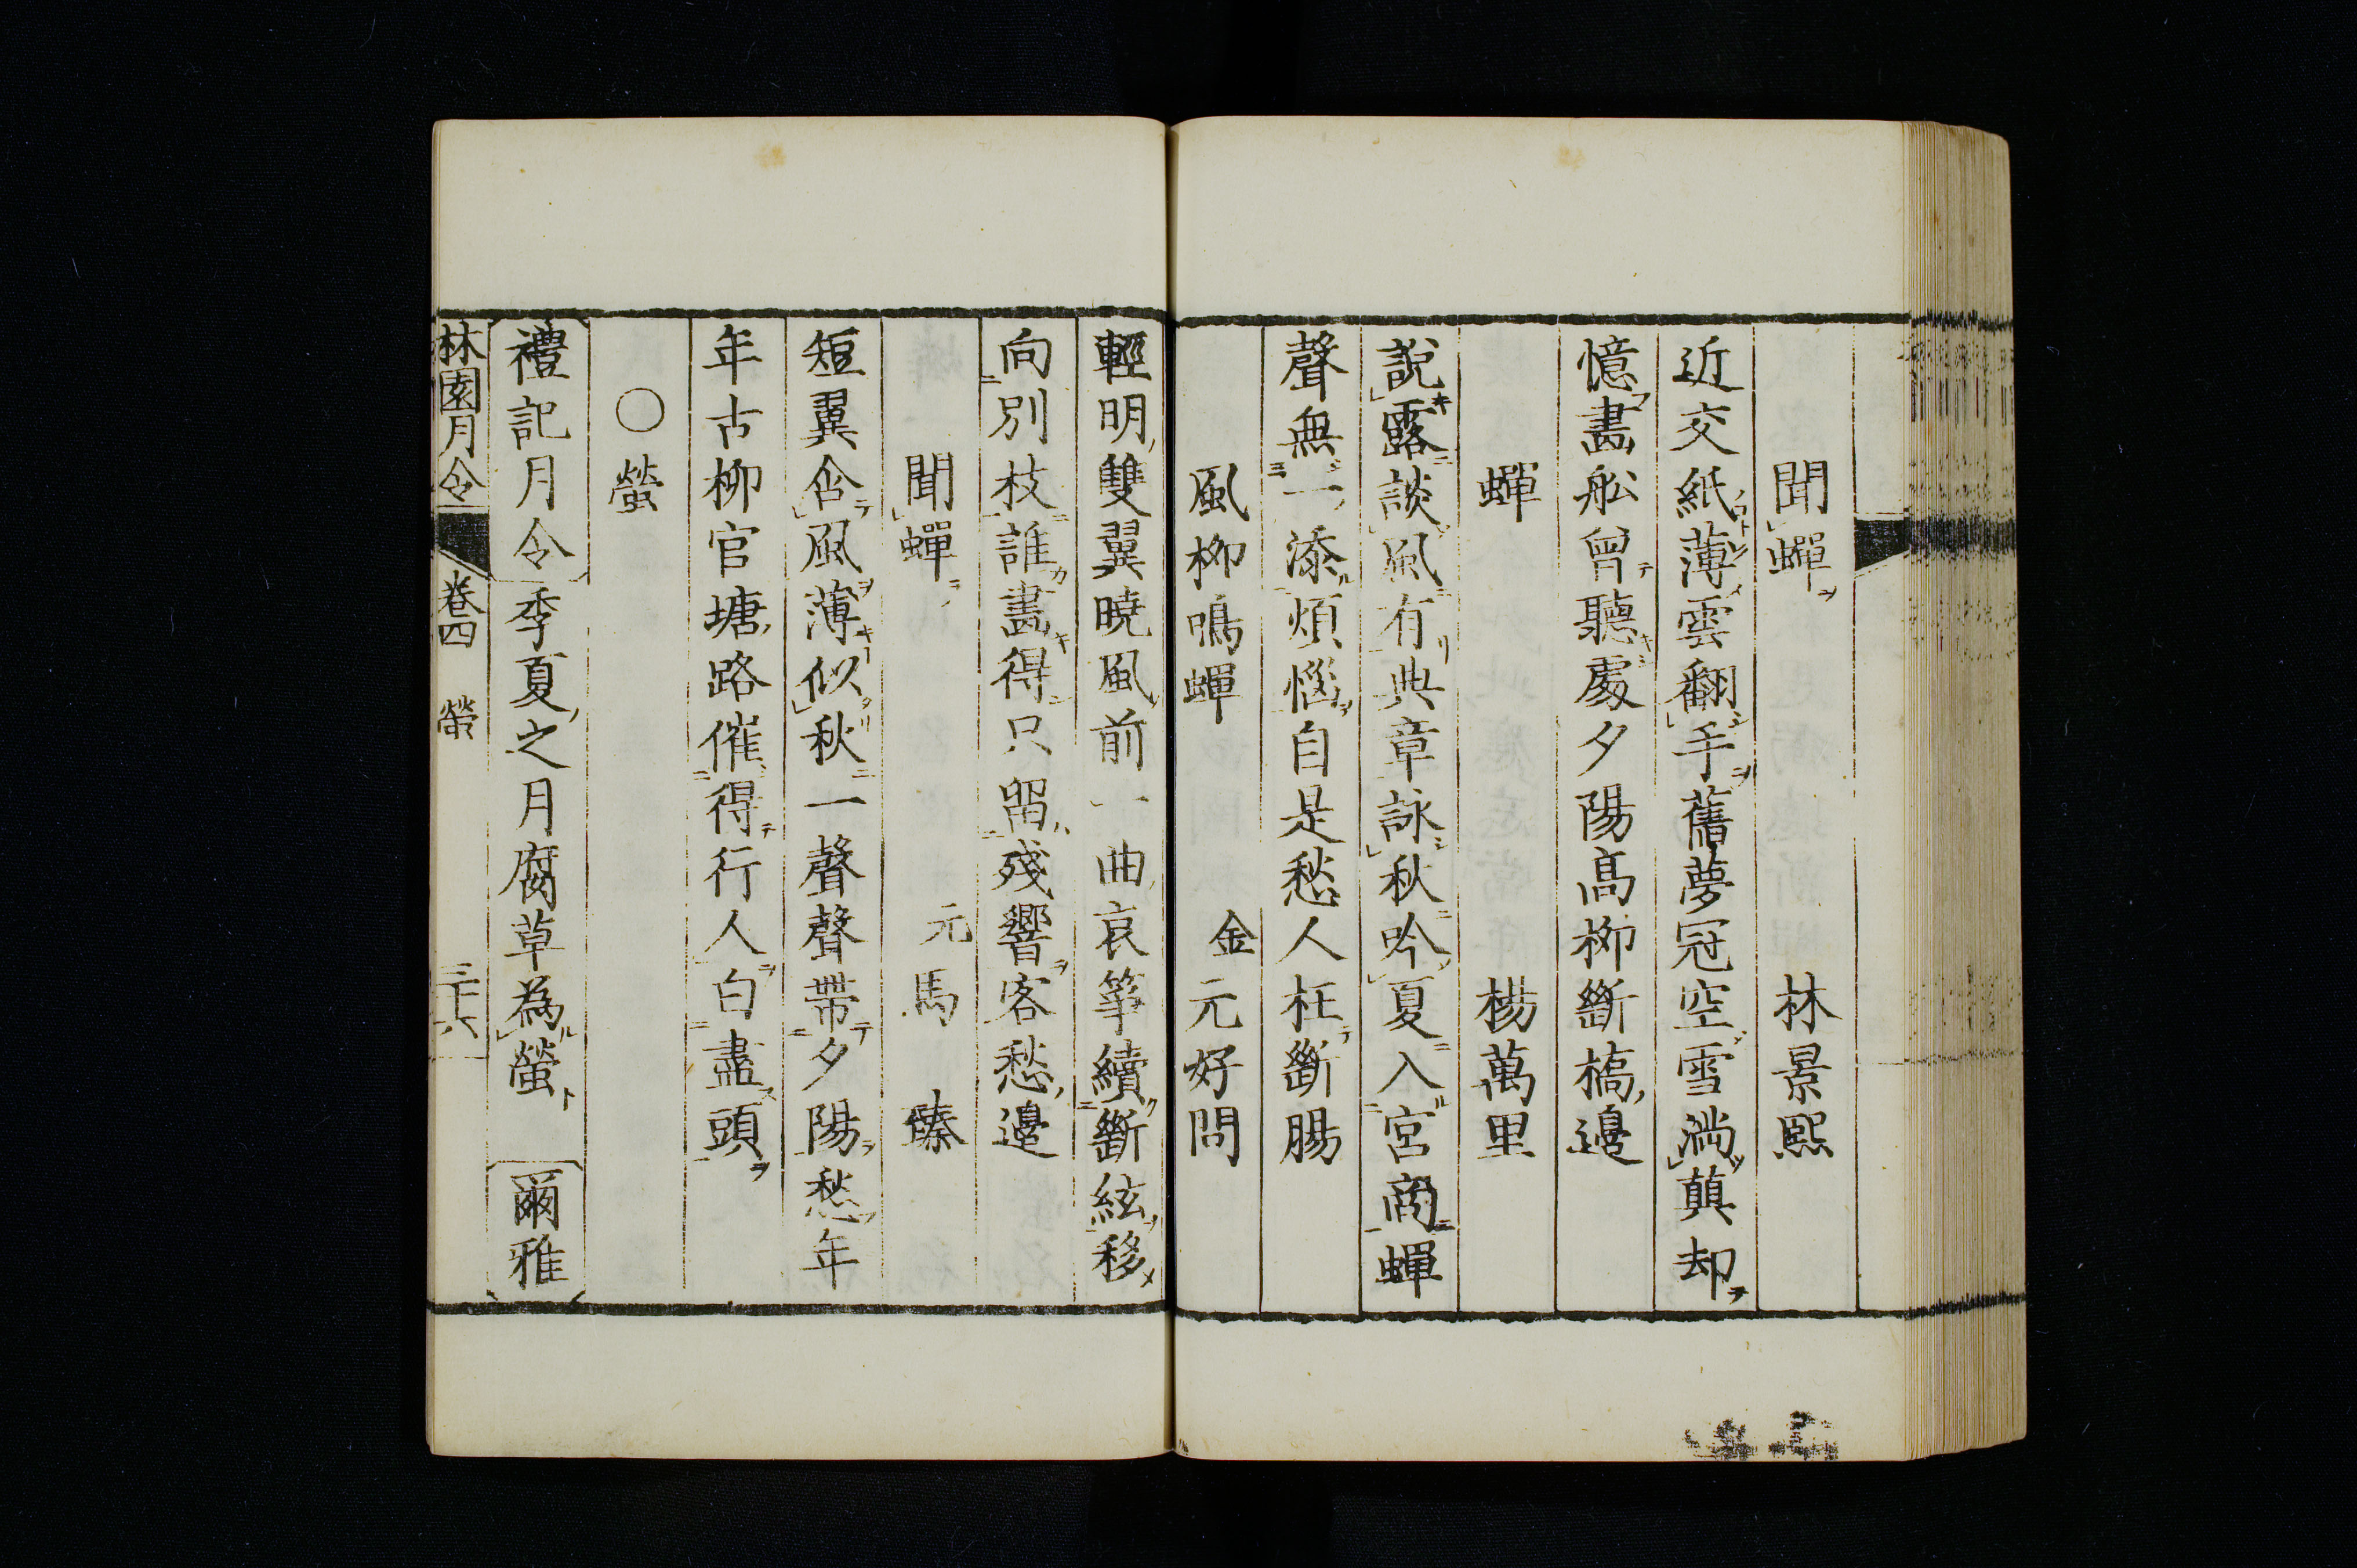 聞蟬 林景熙
近交紙薄雲翻手舊夢冠空雪満蕷却
憶畫舩曾聽處夕陽髙柳斷橋邊
蟬 楊萬里
說露談風有典章詠秋吟夏入宮商蟬
聲無一添煩惱自是愁人枉斷腸
風柳鳴蟬 金元好問
輕明雙翼曉風前一曲哀筝續斷絃移
向別枝誰畫得只留殘響客愁邊
聞蟬 元馬臻
短翼含風薄似秋一聲聲帶夕陽愁年
年古柳官塘路催得行人白盡頭
○螢
禮記月令季夏之月腐草為螢 爾雅
林園月令 卷四 螢 三十六